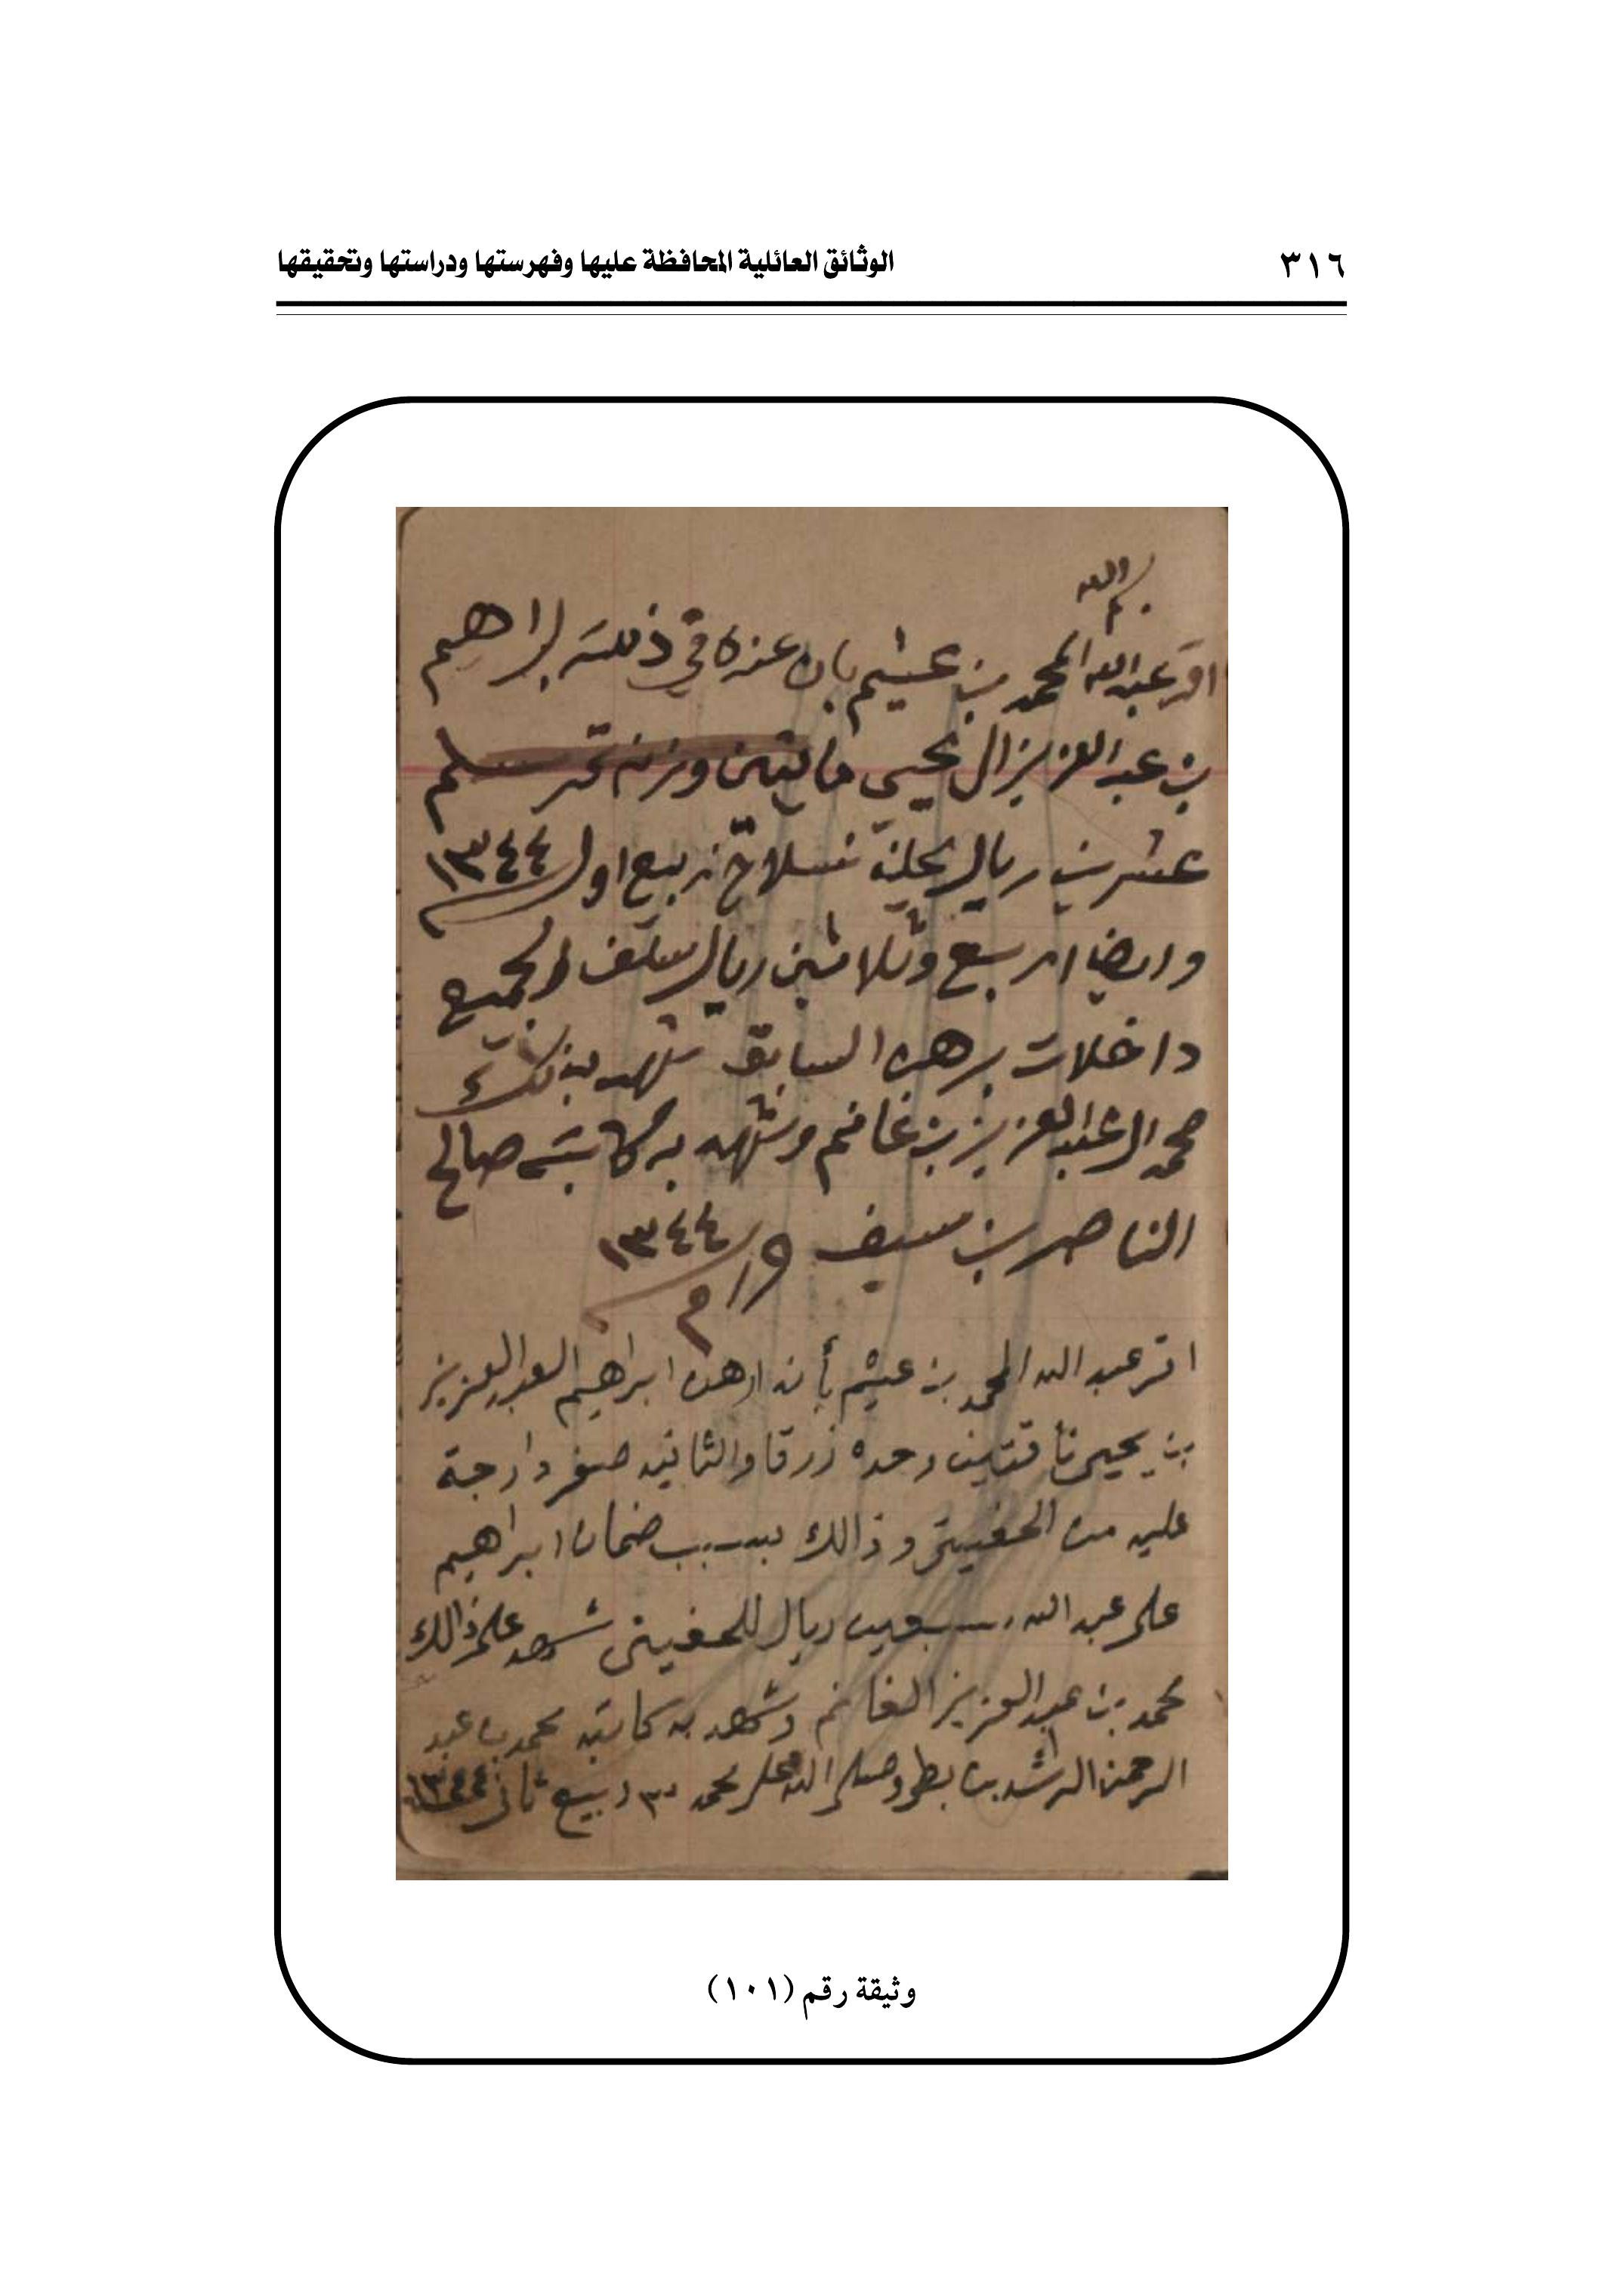 ٣١٦
الوثائق العائلية المحافظة عليها وفهرستها ودراستها وتحقيقها
بسم الله
اقر عبدالله المحمد بن عثيم بان عنده في ذمته لابراهيم
بن عبدالعزيز ال يحيى مايتين وزنه تمر سلم
عشرين ريال يحلن نسلاخ ربيع اول ١٣٤٤
وايضا اربع وثلاثين ريال سلف والجميع
داخلات برهنه السابق شهد بذلك
محمد العبدالعزيز بن غانم وشهد به كاتبه صالح
الناصر بن سيف ١٣٤٤
اقر عبدالله المحمد بن عثيم بأنه ارهن ابراهيم العبدالعزيز
بن يحيى ناقتين وحده زرقا والثانيه صفر دارجة
عليه من الحفيتي وذالك بسبب ضمان ابراهيم
على عبدالله سبعين ريال للحفيتي شهد على ذالك
محمد بن عبدالعزيز الغانم وشهد به كاتبه محمد بن عبد
الرحمن الرشد بن بطي وصلى الله على محمد ٣٠ ربيع ثاني ١٣٤٤
وثيقة رقم (١٠١)